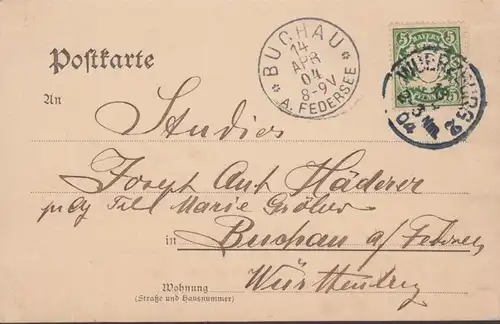 Postkarte
BUCHAU
14
APR
04
8-9V
A. FEDERSEE
5 BAYERN 5
WUERZBURG 2
04
An
Studios
Joseph Ant Häderer
Marie Gröber
in Buchau a/Feders
Württemberg
Wohnung
(Straße und Hausnummer)